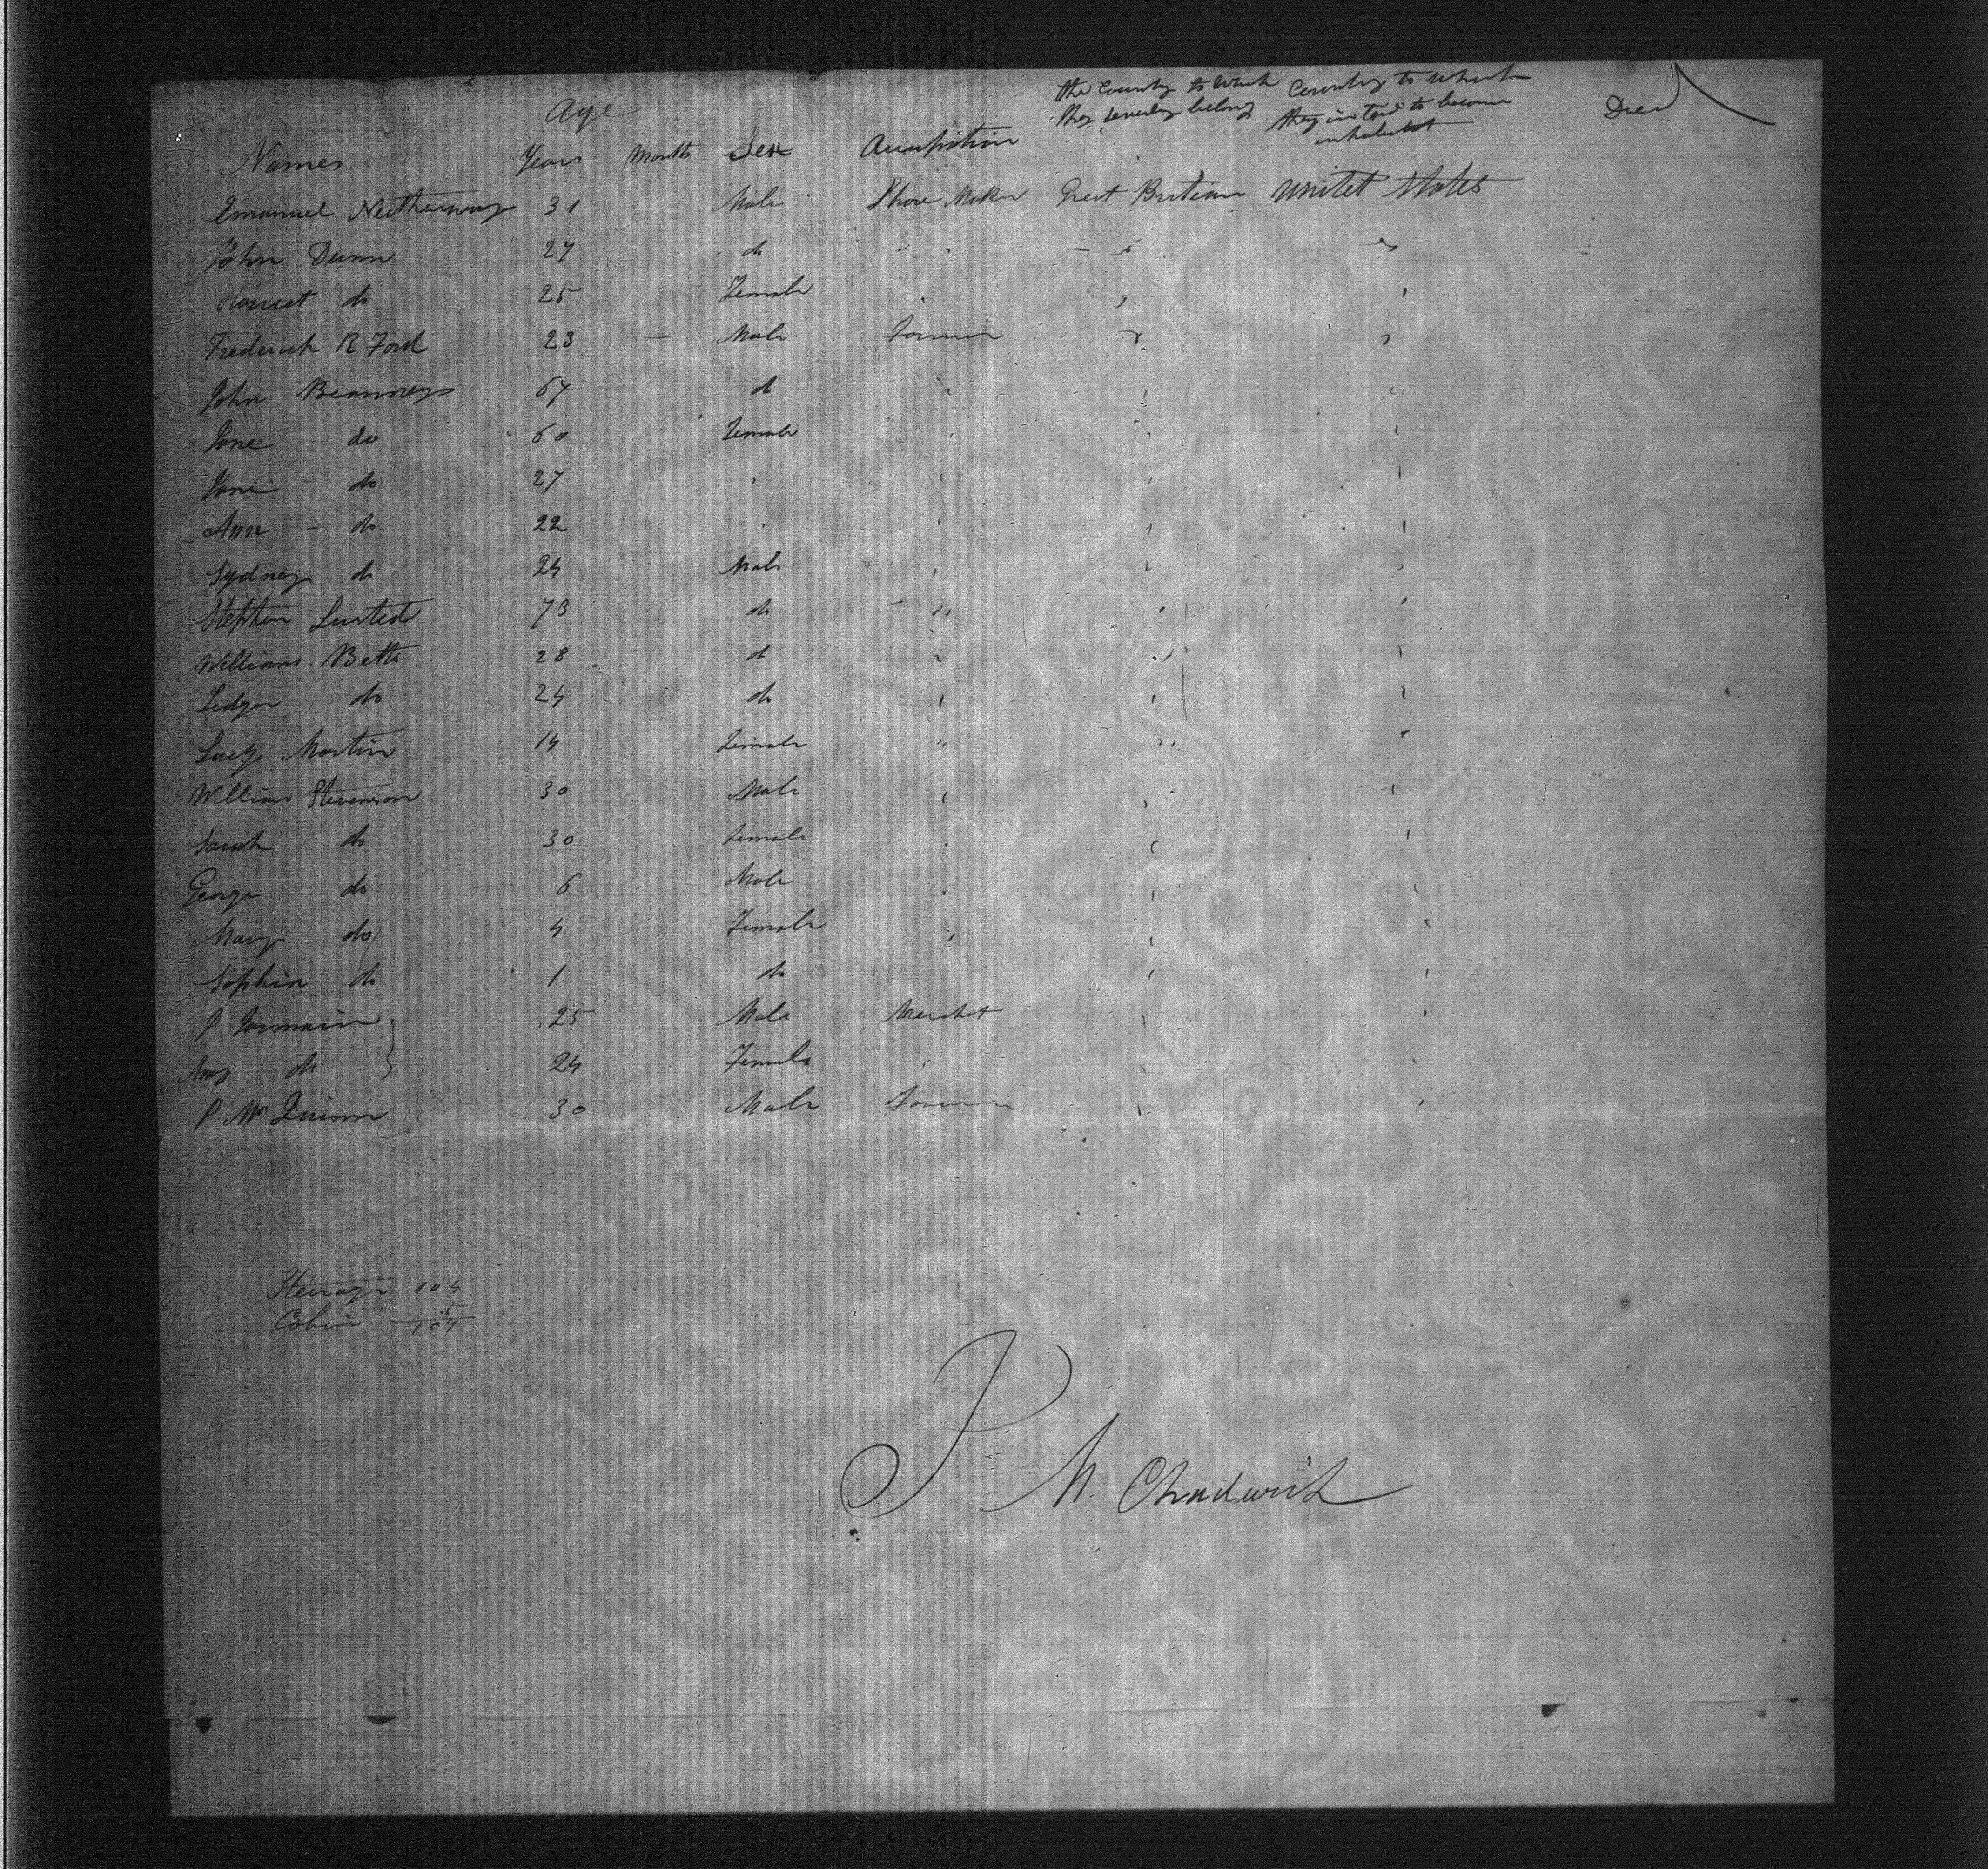 Age
the Country to which Country to which
they severly belong they in tend to become Died
Names Years Months Sex Occupation inhabitet
Emanuel Neitherway 31 Male Shoe Maker Great Britian Unitet States
John Dunn 27 do
Harriet do 25 Female
Frederick R Ford 23 — Male Farmer
John 67 do
Jane do 60 Female
Jane - do 27
Ann - do 22
Sydney do 24 Male
Stephen Lusted 73 do
William Betts 28 do
Ledger do 24 do
Lucy Martin 14 Female
William Stevenson 30 Male
Sarah do 30 Female
George do 6 Male
Mary do 4 Female
Sophia do 1 do
P Jarmain 25 Male Merchet
Mary do 24 Female
P Mc Quinn 30 Male Farmer
Steerage 104
Cabin 5
109
P M. Chadwick